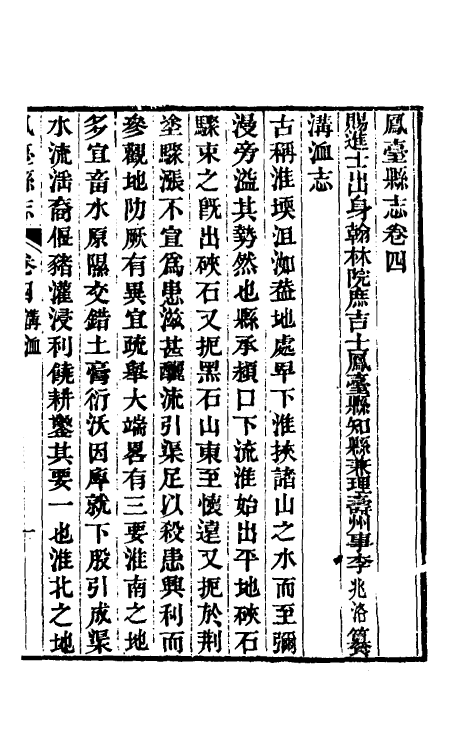 鳳臺縣志卷四
賜進士出身翰林院庶吉士鳳臺縣知縣兼理壽州事李兆洛纂
溝洫志
古稱淮壖沮洳葢地處卑下淮挾諸山之水而至彌
漫旁溢其勢然也縣承潁口下流淮始出平地硤石
騾束之旣出硤石又扼黑石山東至懷遠又扼於荆
塗騾漲不宜為患滋甚釃流引渠足以殺患興利而
參觀地阞厥有異宜疏舉大端畧有三要淮南之地
多宜畜水原隰交錯土膏衍沃因庳就下股引成渠
水流湉裔偃豬灌浸利饒耕鑿其要一也淮北之地
鳳臺縣志 卷四 溝洫 一